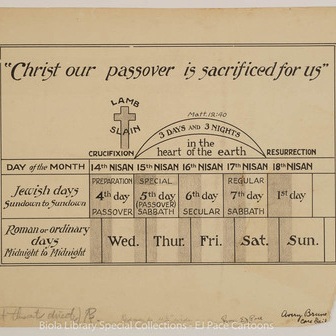 "Christ our passover is sacrificed for us"
LAMB
SLAIN
Matt. 12:40
3 DAYS AND 3 NIGHTS
in the
heart of the earth
CRUCIFIXION
RESURRECTION
DAY of the MONTH 14th NISAN 15th NISAN 16th NISAN 17th NISAN 18th NISAN
Jewish days
Sundown to Sundown
PREPARATION
4th day
PASSOVER
SPECIAL
5th day
(PASSOVER)
SABBATH
6th day
SECULAR
REGULAR
7th day
SABBATH
1st day
Roman or ordinary
days
Midnight to Midnight
Wed. Thur. Fri. Sat. Sun.
Biola Library Special Collections - EJ Pace Cartoons